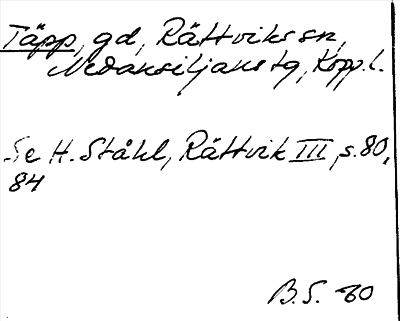 Täpp, gd, Rättviks sn,
Nedansiljans tg, Kopp. l.
Se H. Ståhl, Rättvik III, s. 80,
84
B.S. 60